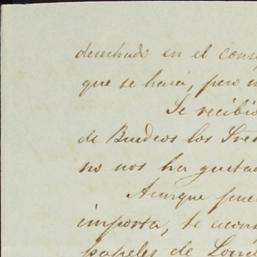 desechado en el cons
que se haria, pero n
Se recibio
de Burdeos los Sres
no nos ha gusta
Aunque pue
importa, se acom
papeles de Lond